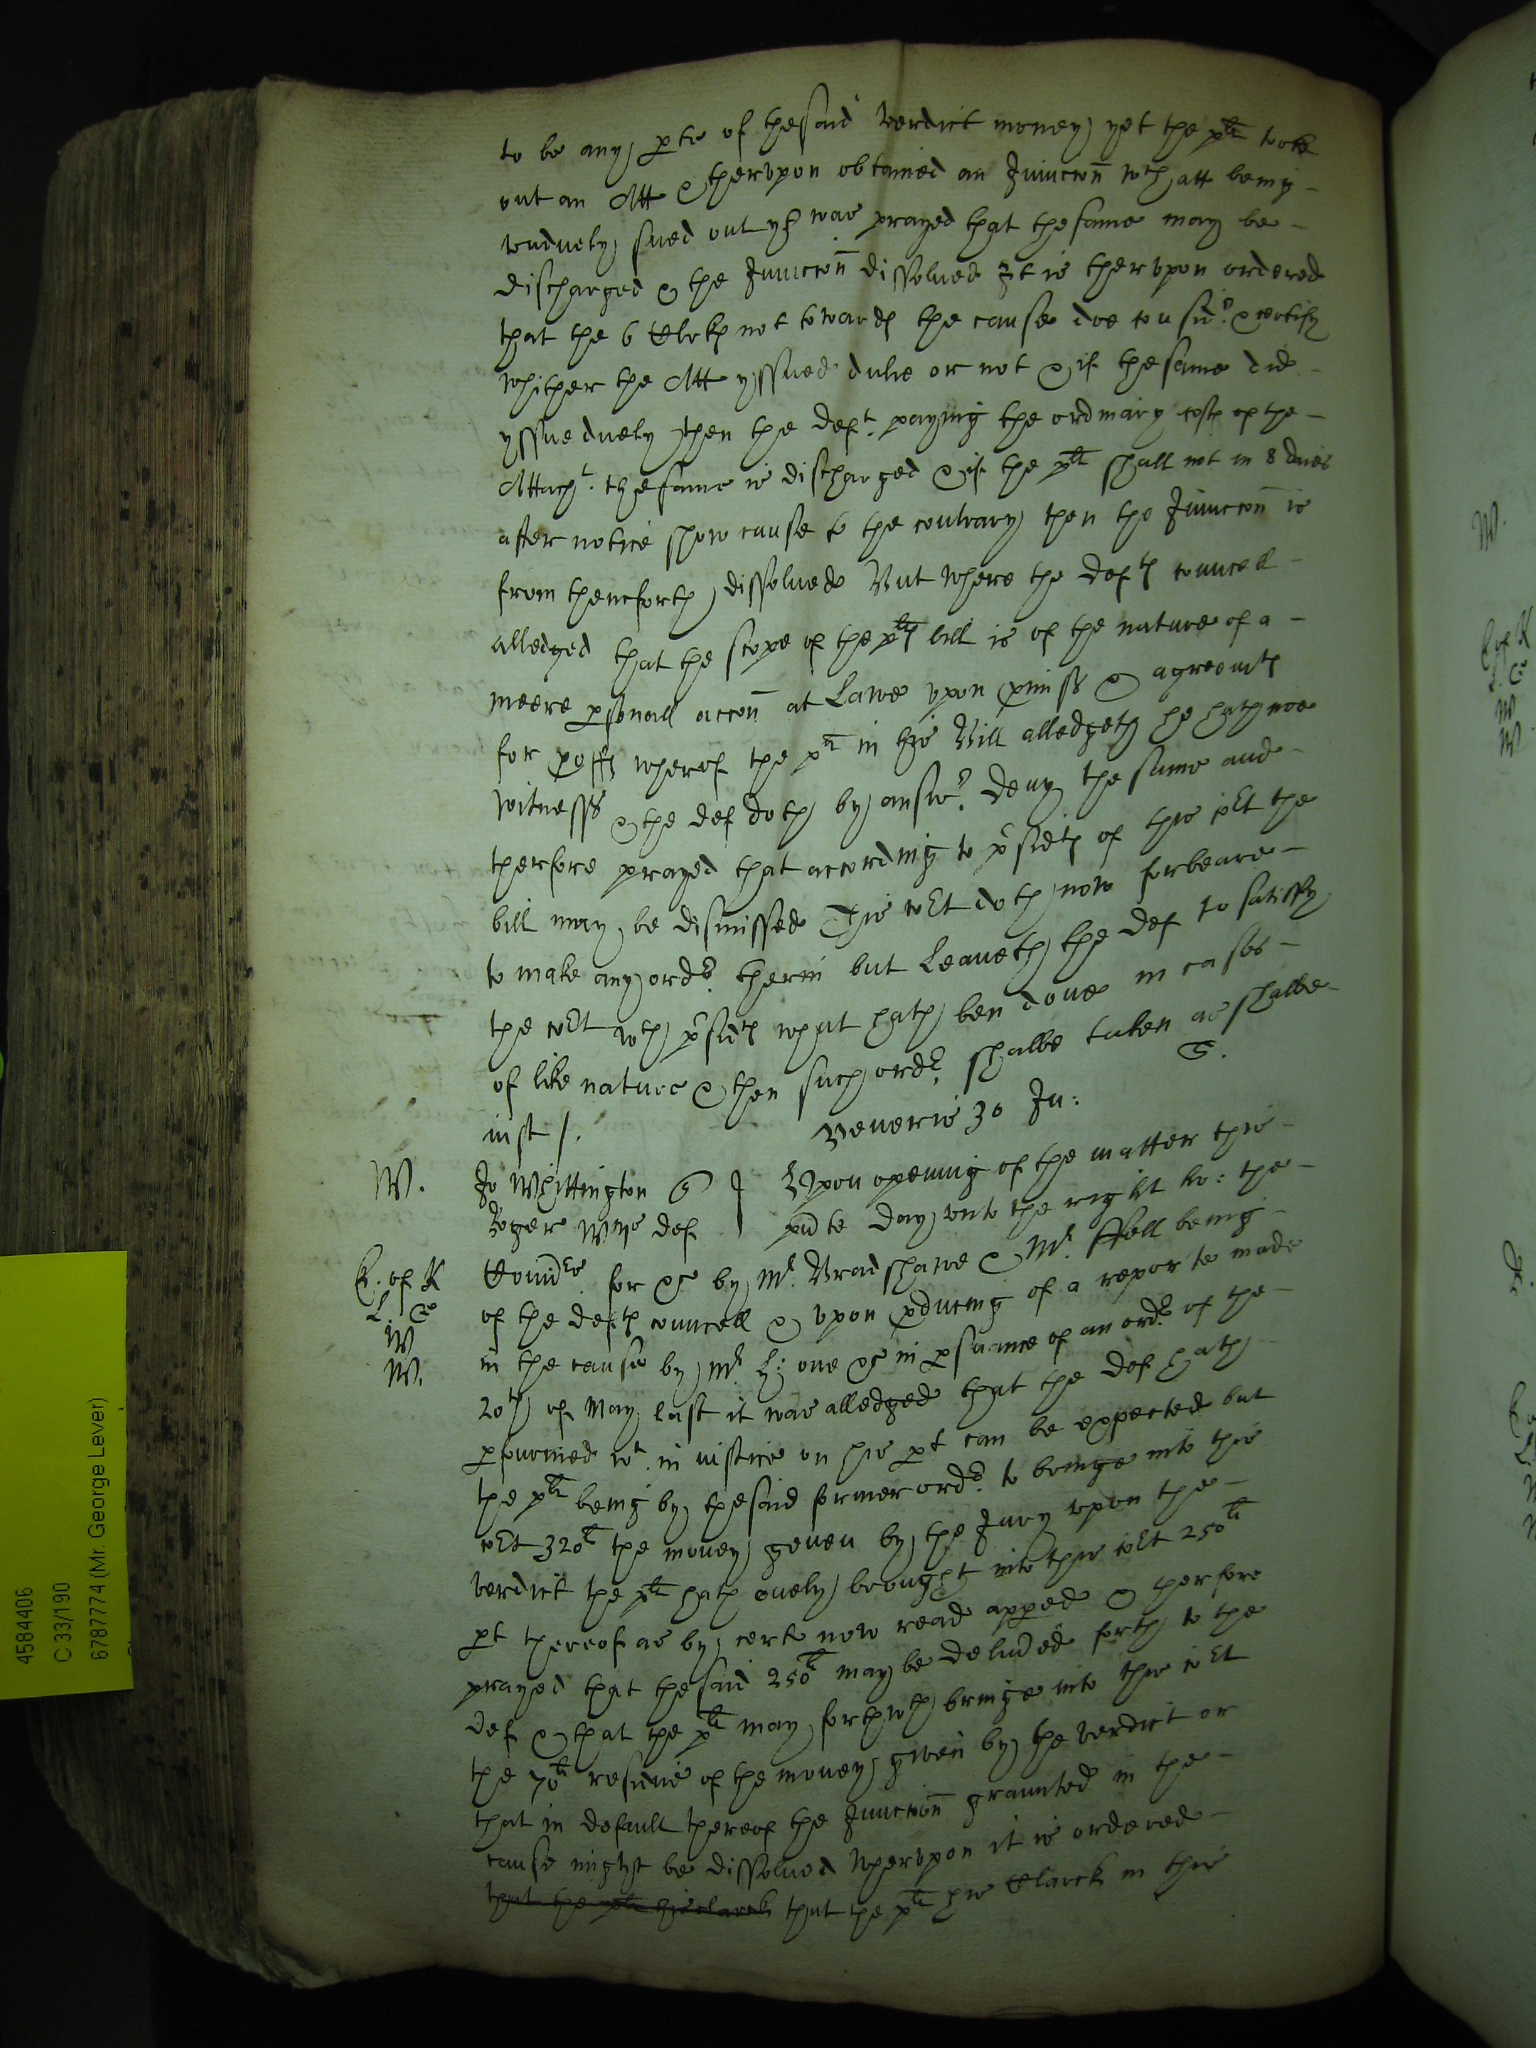 to be any p̱te of thesaid verdict money yet the plt tooke
out an Att & thervpon obtained an Iniuccon̄ wch att being
vnduely sued out yt was prayed that thesame may be
discharged & the Iniuccon̄ dissolued It is thervpon ordered
that the 6 Clrkes not towards the cause doe consider & certify
whither the Att yssued dulie or not & if thesame did
yssue duely then the deft. paying the ordinary costes of the
Attacht. thesame is discharged & if the plt shall not in 8 daies
after notice shew cause to the contrary then the Iniuccon̄ is
from thencforth dissolued But where the deftes councell
alledged that the scope of the pltes bill is of the nature of a
meere p̱sonall accon̄ at Lawe vpon p̱miss & agreemtes
for p̱ffs wherof the plt in his Bill alledgeth he hath noe
witnesses & the def doth by answr. deny the same and
therfore prayed that according to p̄sidtes of this cort the
bill may be dismissed This cort doth now forbeare
to make any ordr. therin but Leaueth the def to satisfy
the cort wth p̄sidtes what hath ben done in cases
of like nature & then such ordr. shalbe taken as shalbe
iust /.
T.
Veneris 30 Iu:
W.
Jo Whittington qr
Roger Wms def
Vpon opening of the matter this
pnte day vnto the right ho: the
E. of K
L. C
W
W.
Comrs for &c by Mr. Bradshawe & Mr. Fell being
of the deftes councell & vpon p̱ducing of a reporte made
in the cause by Mr. one &c in p̱suance of an ordr. of the
20th of May last it was alledged that the def hath
p̱fourmed wt. in iustice on his p̱t can be expected but
the plt being by thesaid former ordr. to bringe into this
cort 320li the money geuen by the Iury vpon the
verdict the plt hath onely brought into this cort 250li
p̱t thereof as by certe now read app̱ed & therfore
prayed that thesaid 250li may be deliu̅ed forth to the
def & that the plt may forthwth bringe into this cort
the 70li residue of the money given by the verdict or
that in default thereof the Iniuccon̄ graunted in the
cause might be dissolued Whervpon it is ordered
that the plt his clarck that the plt his Clarck in this
4584406
C 33/190
6787774 (Mr. George Lever)
W.
E of K
L. C
W
W